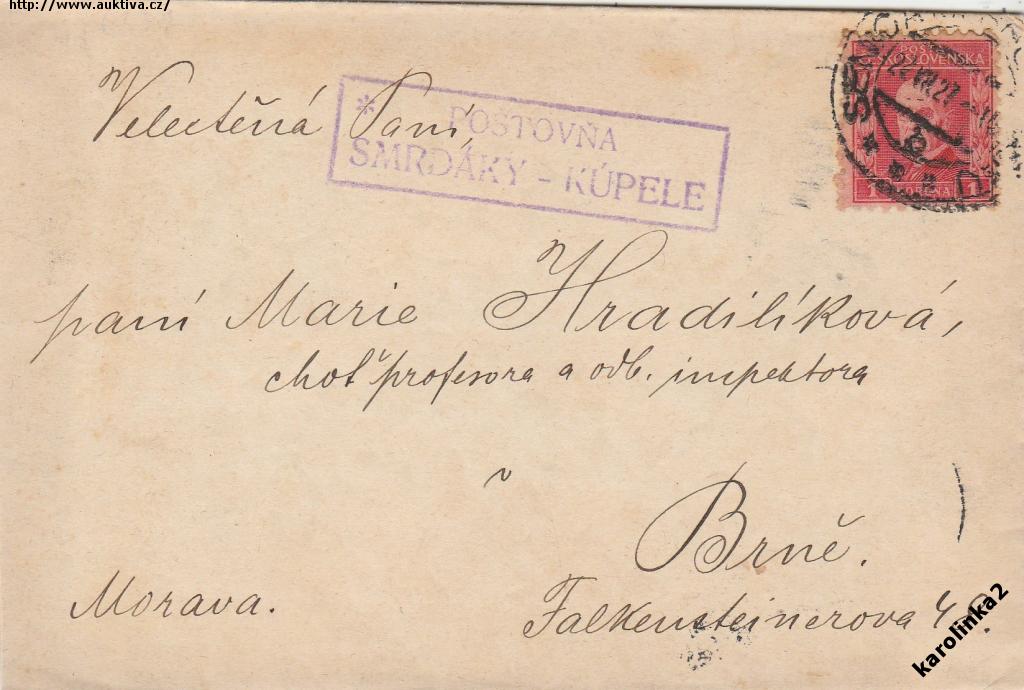 http://www.auktiva.cz/
Velectěná Paní,
* POŠTOVŇA
SMRDÁKY - KÚPELE
POŠTA
ČESKOSLOVENSKA
22.VII.27
1 KORUNA 1
paní Marie Hradilíková,
choť profesora a odb. inspektora
v
Brně.
Morava.
Falkensteinerova 4
karolinka2